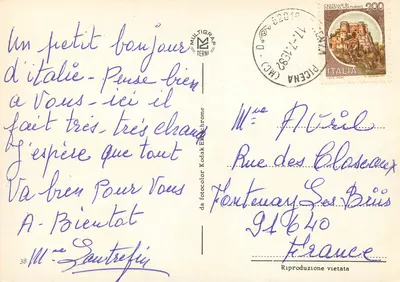 Un petit bonjour
d'italie - Pense bien
a Vous - ici il
fait très - très chaud
J'espère que tout
Va bien Pour Vous
A - Bientot
Mme
38
MULTIGRAF
TERNI
da fotocolor Kodak Ektachrome
200
ITALIA
PICENA (MC)
Mme Avril
Rue des Closeaux
Fontenay Les Biis
91640
France
Riproduzione vietata